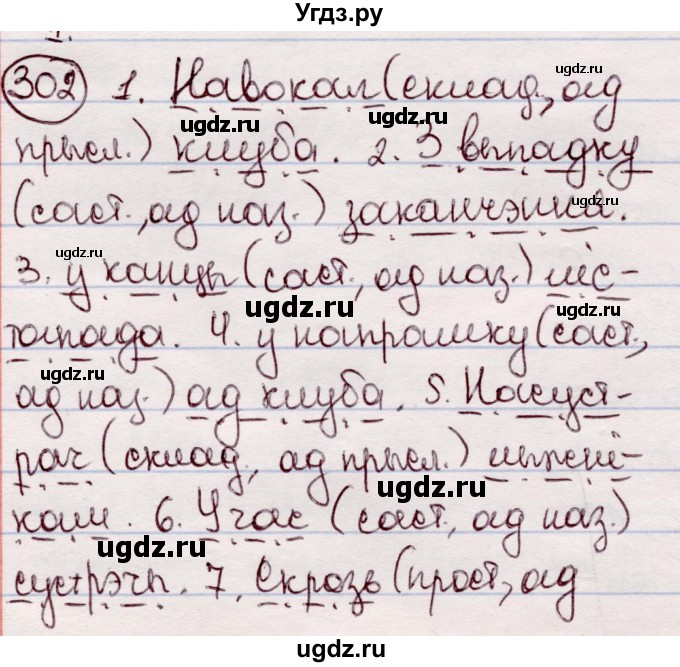 Угдз.ру
302 1. Навокал (склад., ад
прысл.) клуба. 2. З выпадку
(саст., ад наз.) заканчэння.
3. у канцы (саст., ад наз.) ліс-
тапада. 4. у напрамку (саст.,
ад наз.) ад клуба. 5. Насуст-
рач (склад., ад прысл.) лыжні-
кам. 6. У час (саст., ад наз.)
сустрэчы. 7. Скрозь (прост., ад
ugdz.ru
ugdz.ru
ugdz.ru
ugdz.ru
ugdz.ru
ugdz.ru
ugdz.ru
ugdz.ru
ugdz.ru
ugdz.ru
ugdz.ru
ugdz.ru
ugdz.ru
ugdz.ru